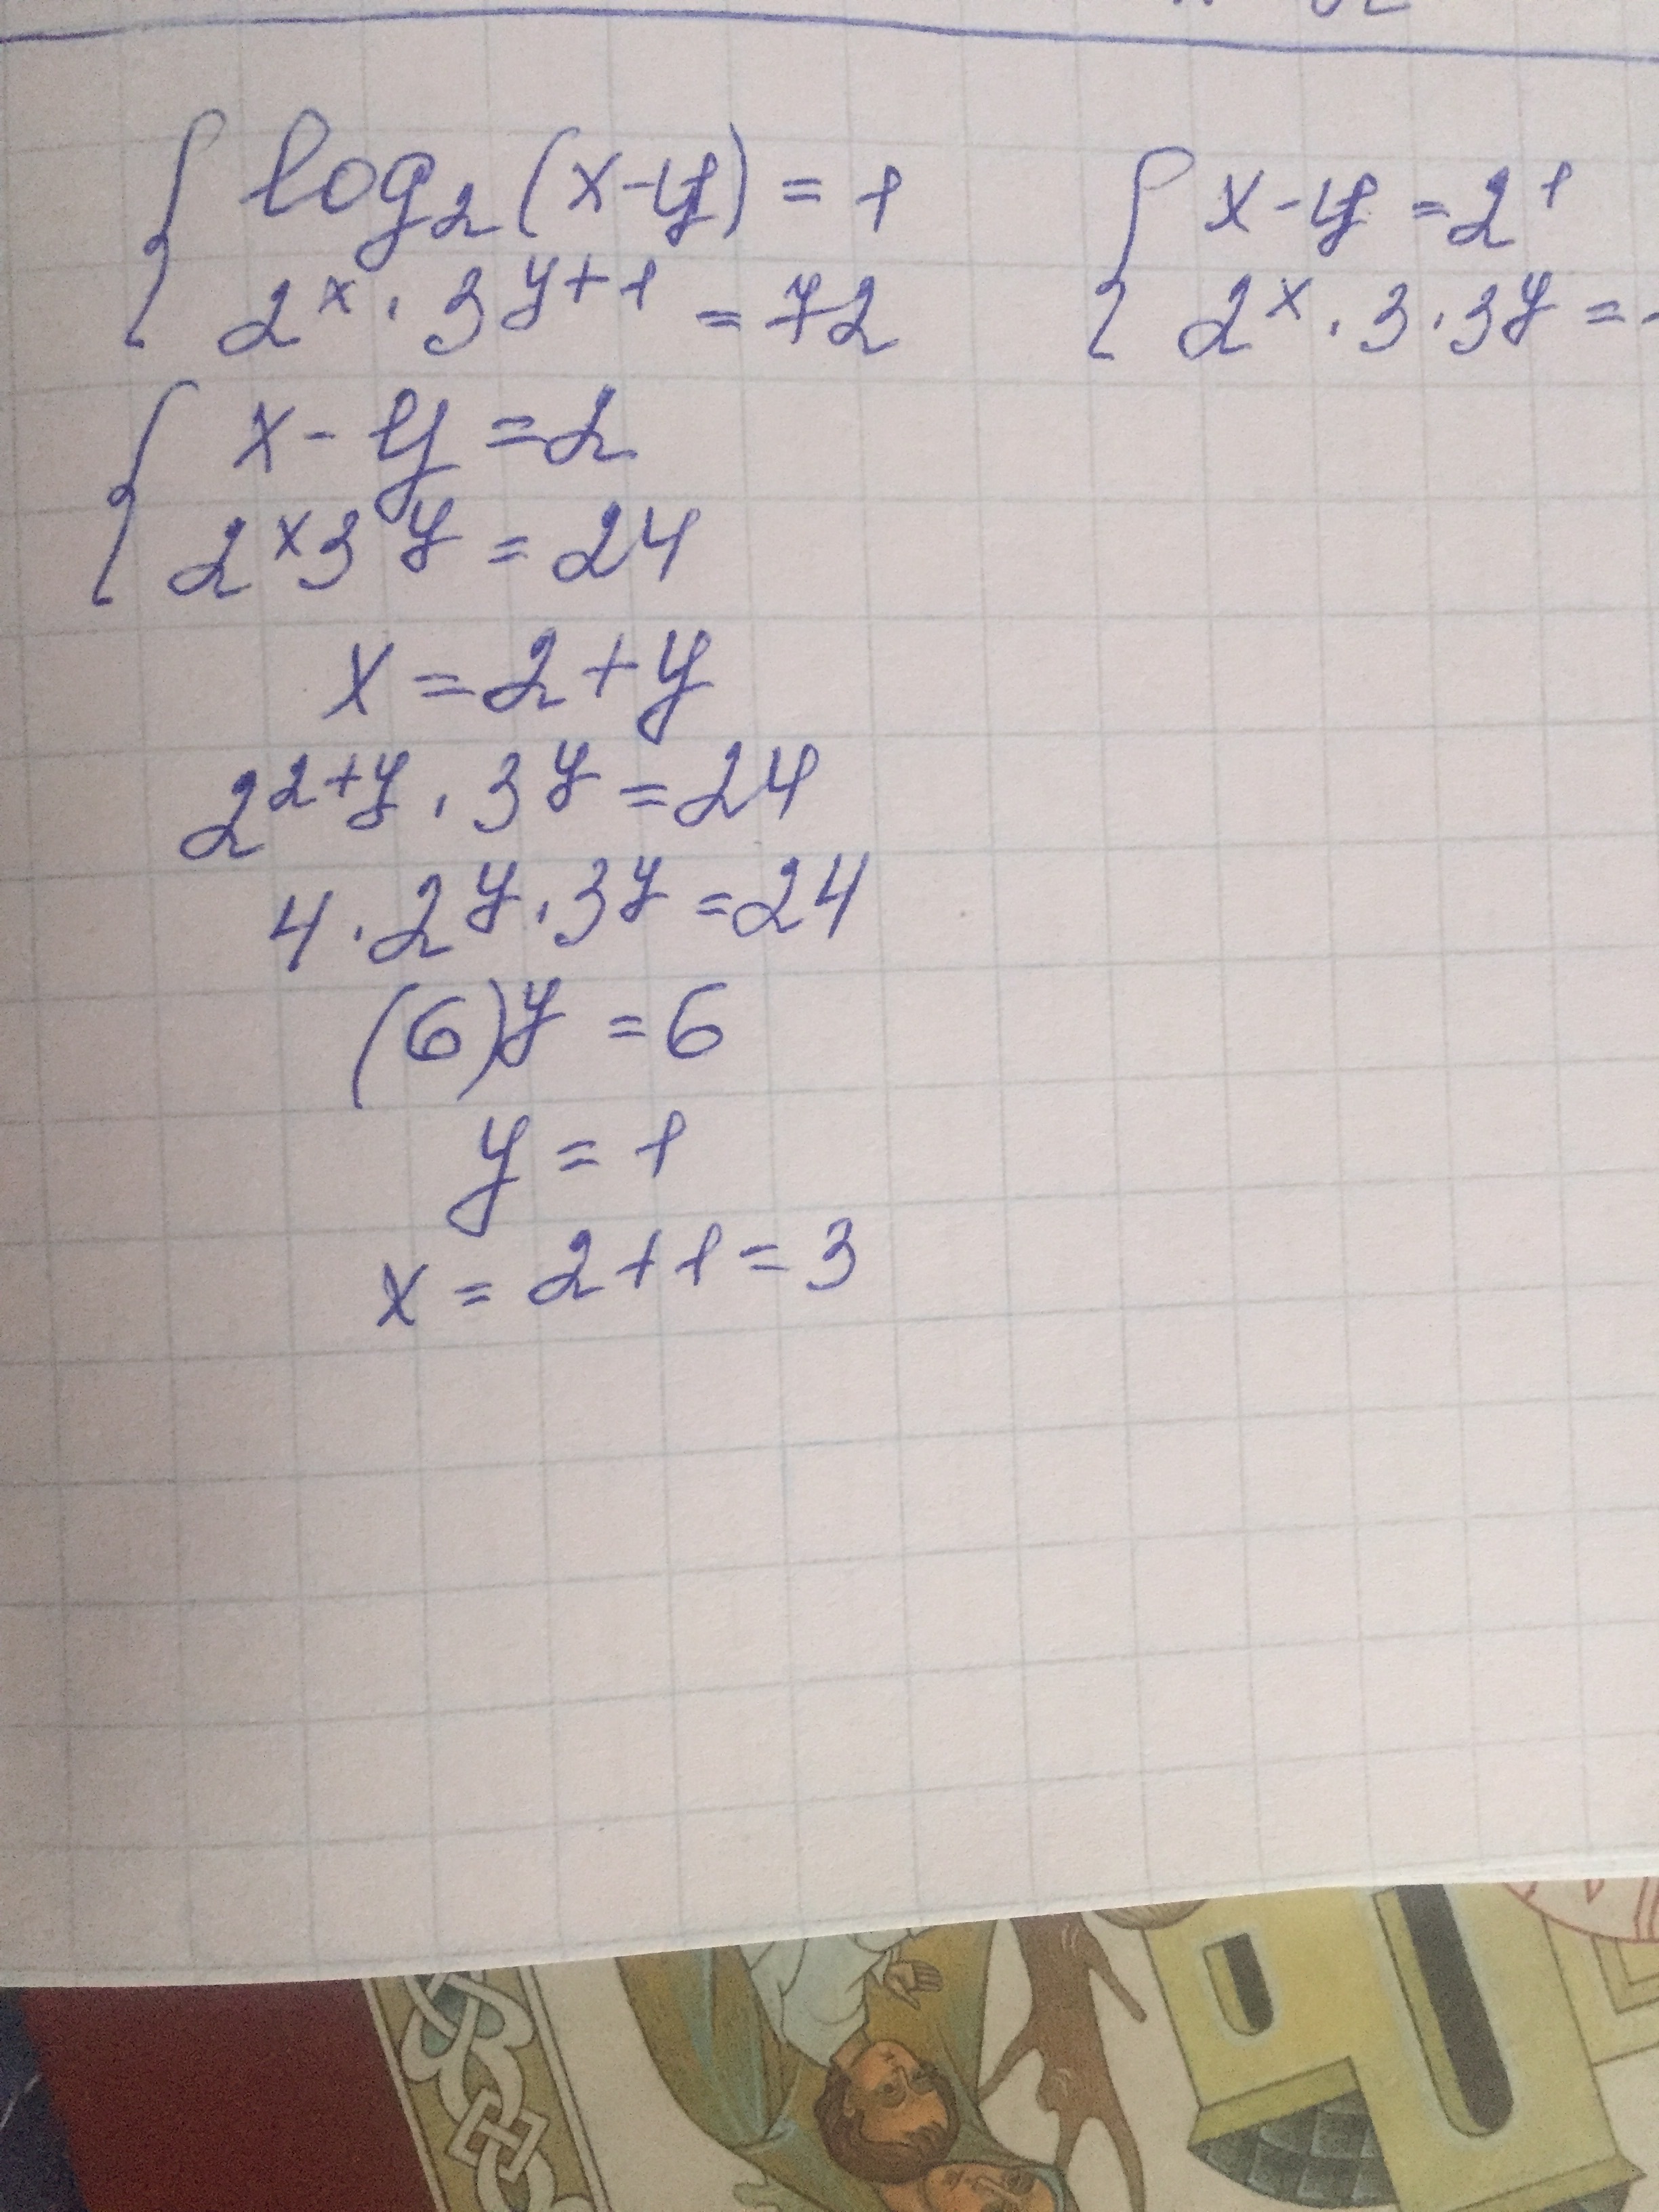 { log₂(x-y) = 1
2ˣ · 3ʸ⁺¹ = 72
{ x-y = 2¹
2ˣ · 3 · 3ʸ =
{ x - y = 2
2ˣ3ʸ = 24
x = 2 + y
2²⁺ʸ · 3ʸ = 24
4 · 2ʸ · 3ʸ = 24
(6)ʸ = 6
y = 1
x = 2 + 1 = 3